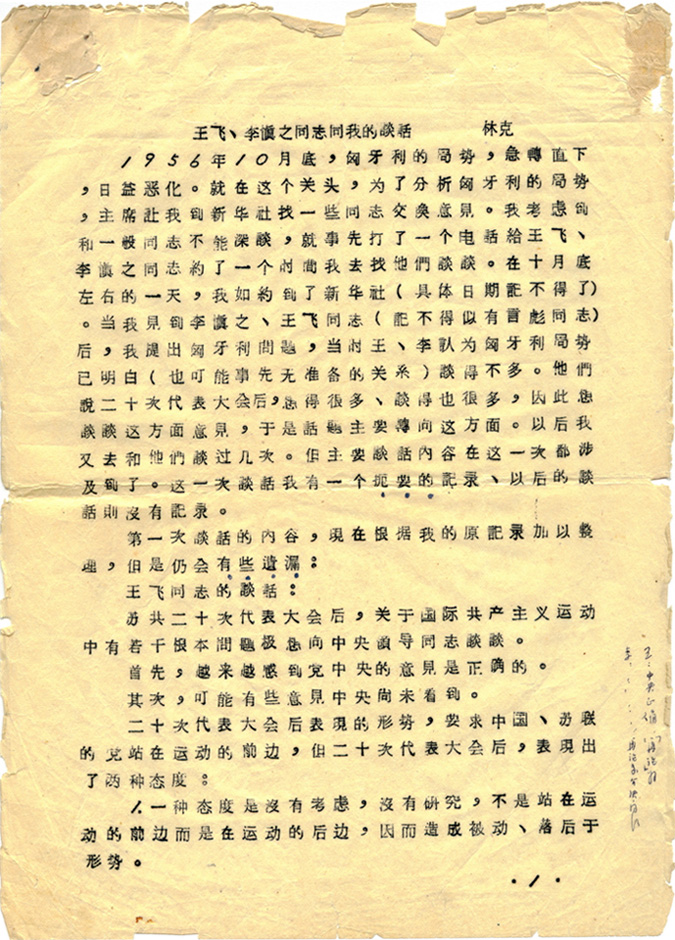 王飞、李慎之同志同我的談話　　　林克
1956年10月底，匈牙利的局勢，急轉直下
，日益恶化。就在这个关头，为了分析匈牙利的局勢
，主席让我到新华社找一些同志交換意見。我考虑到
和一般同志不能深談，就事先打了一个电話給王飞、
李慎之同志約了一个时間我去找他們談談。在十月底
左右的一天，我如約到了新华社（具体日期記不得了）
。当我見到李慎之、王飞同志（記不得似有言彪同志）
后，我提出匈牙利問題，当时王、李訣为匈牙利局勢
已明白（也可能事先无准备的关系）談得不多。他們
說二十次代表大会后，想得很多、談得也很多，因此想
談談这方面意見，于是話題主要轉向这方面。以后我
又去和他們談过几次。但主要談話內容在这一次都涉
及到了。这一次談話我有一个扼要的記录、以后的談
話則沒有記录。
第一次談話的內容，現在根据我的原記录加以整
理，但是仍会有些遺漏：
王飞同志的談話：
苏共二十次代表大会后，关于国际共产主义运动
中有若干根本問題极想向中央領导同志談談。
首先，越来越感到党中央的意見是正确的。
其次，可能有些意見中央尚未看到。
二十次代表大会后表現的形势，要求中国、苏联
的党站在运动的前边，但二十次代表大会后，表現出
了两种态度：
1.一种态度是沒有考虑，沒有研究，不是站在运
动的前边而是在运动的后边，因而造成被动、落后于
形势。
·1·